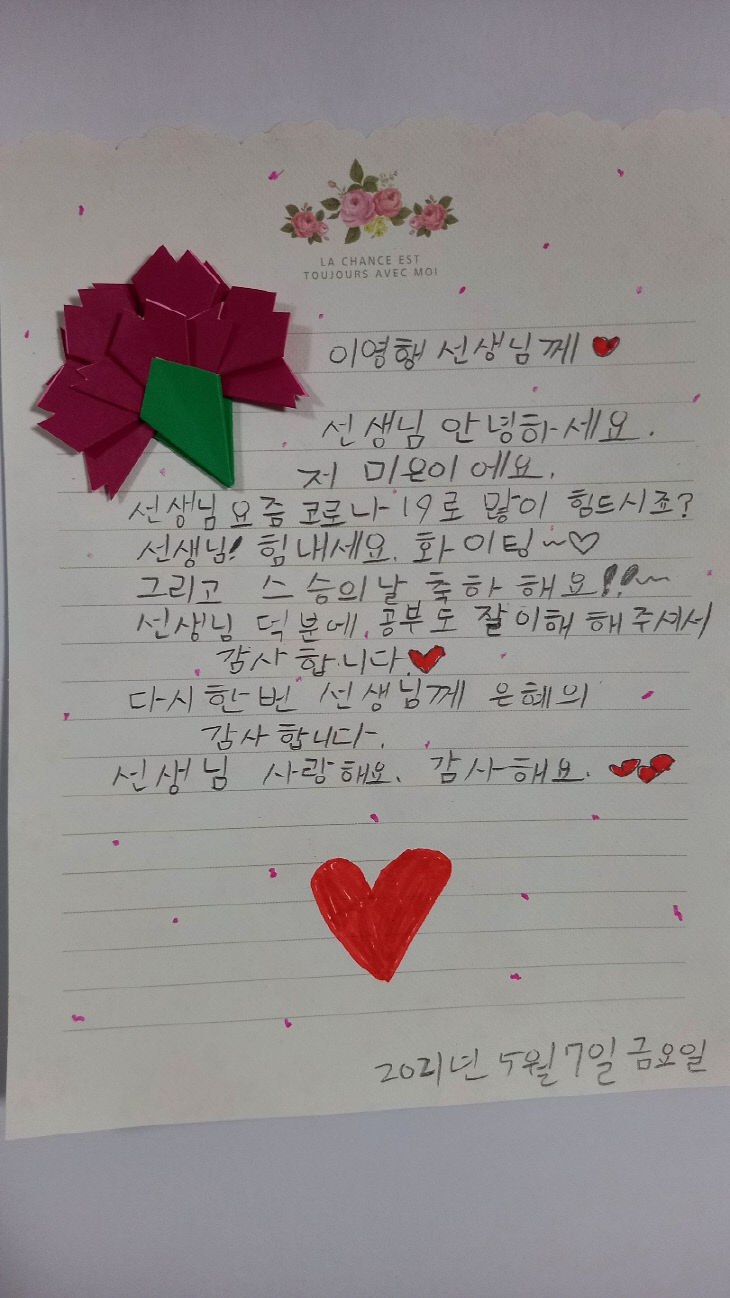 LA CHANCE EST
TOUJOURS AVEC MOI
이영행 선생님께
선생님 안녕하세요.
저 미은이에요.
선생님 요즘 코로나 19로 많이 힘드시죠?
선생님! 힘내세요. 화이팅~♡
그리고 스승의날 축하해요!!~
선생님 덕분에 공부도 잘 이해 해주셔서
감사합니다.
다시한번 선생님께 은혜의
감사합니다.
선생님 사랑해요. 감사해요.
2021년 5월 7일 금요일